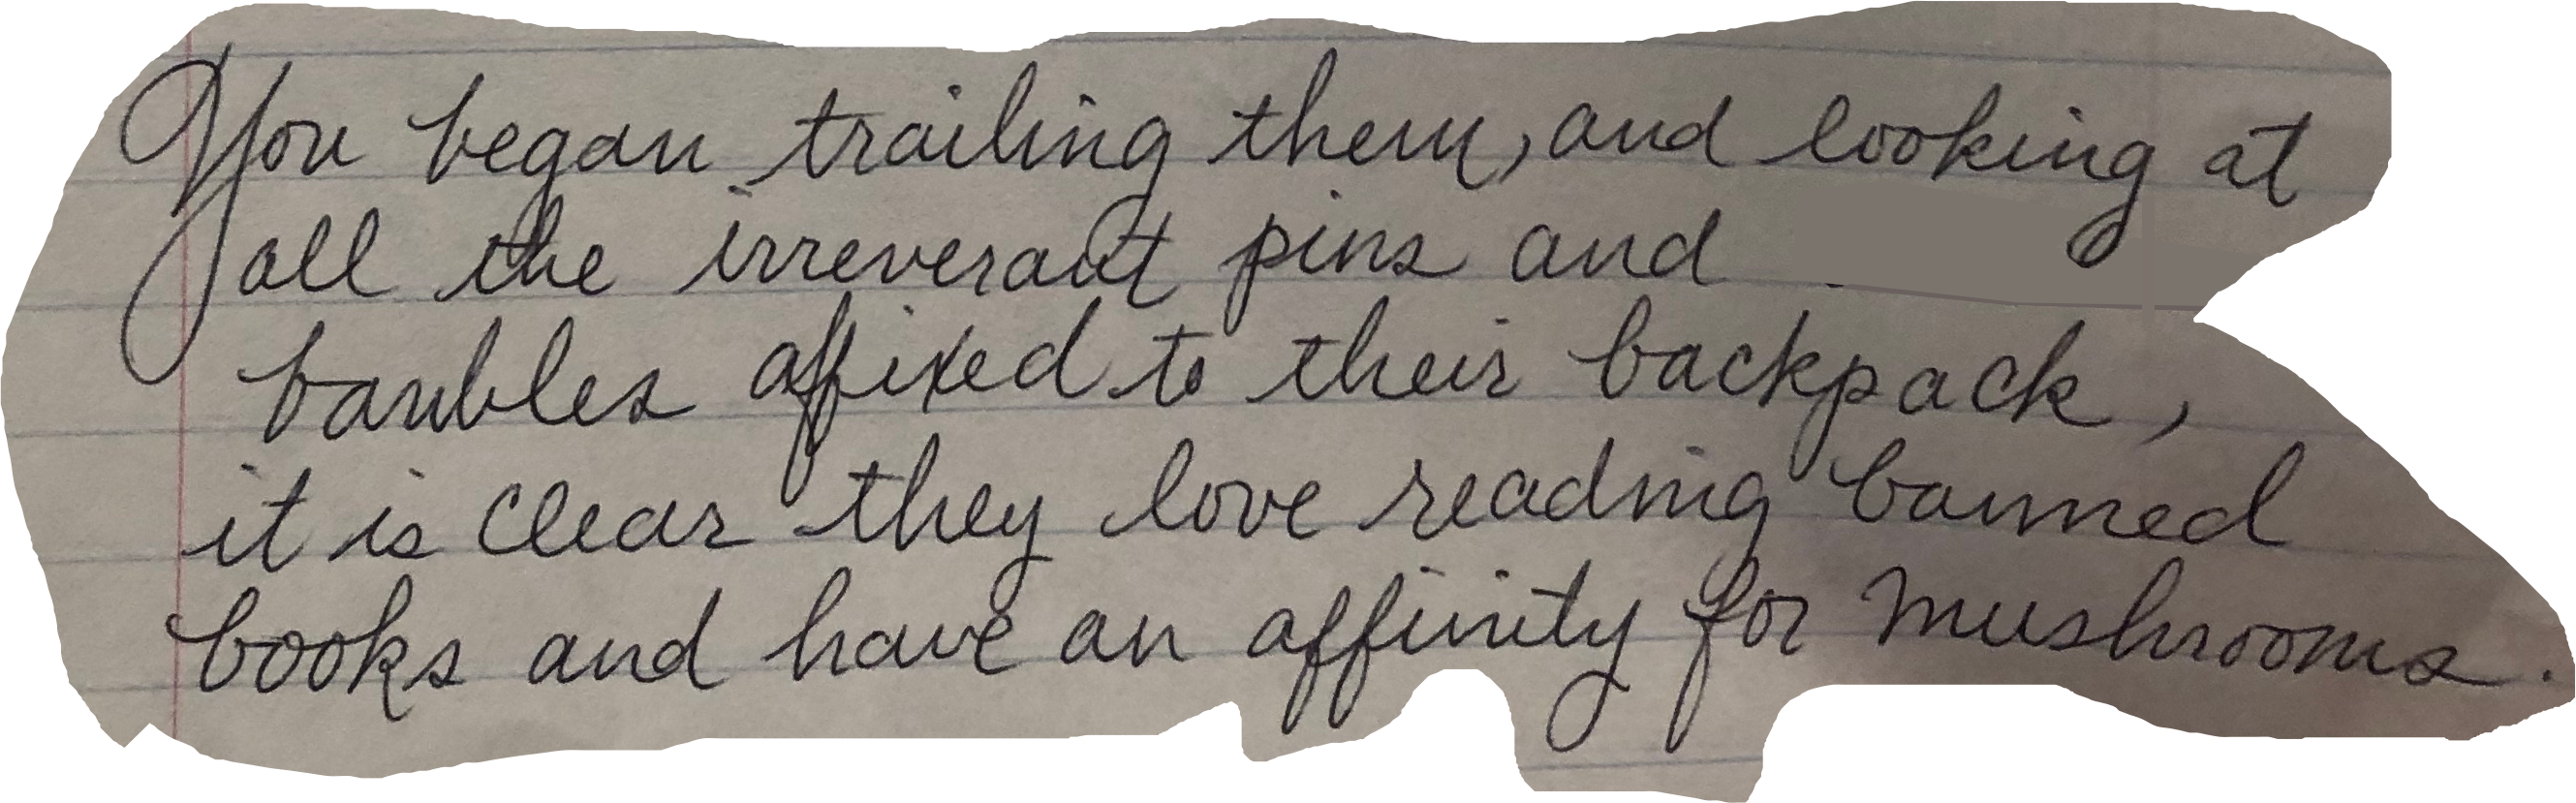 You began trailing them, and looking at
all the irreverant pins and
baubles affixed to their backpack,
it is clear they love reading banned
books and have an affinity for mushrooms.